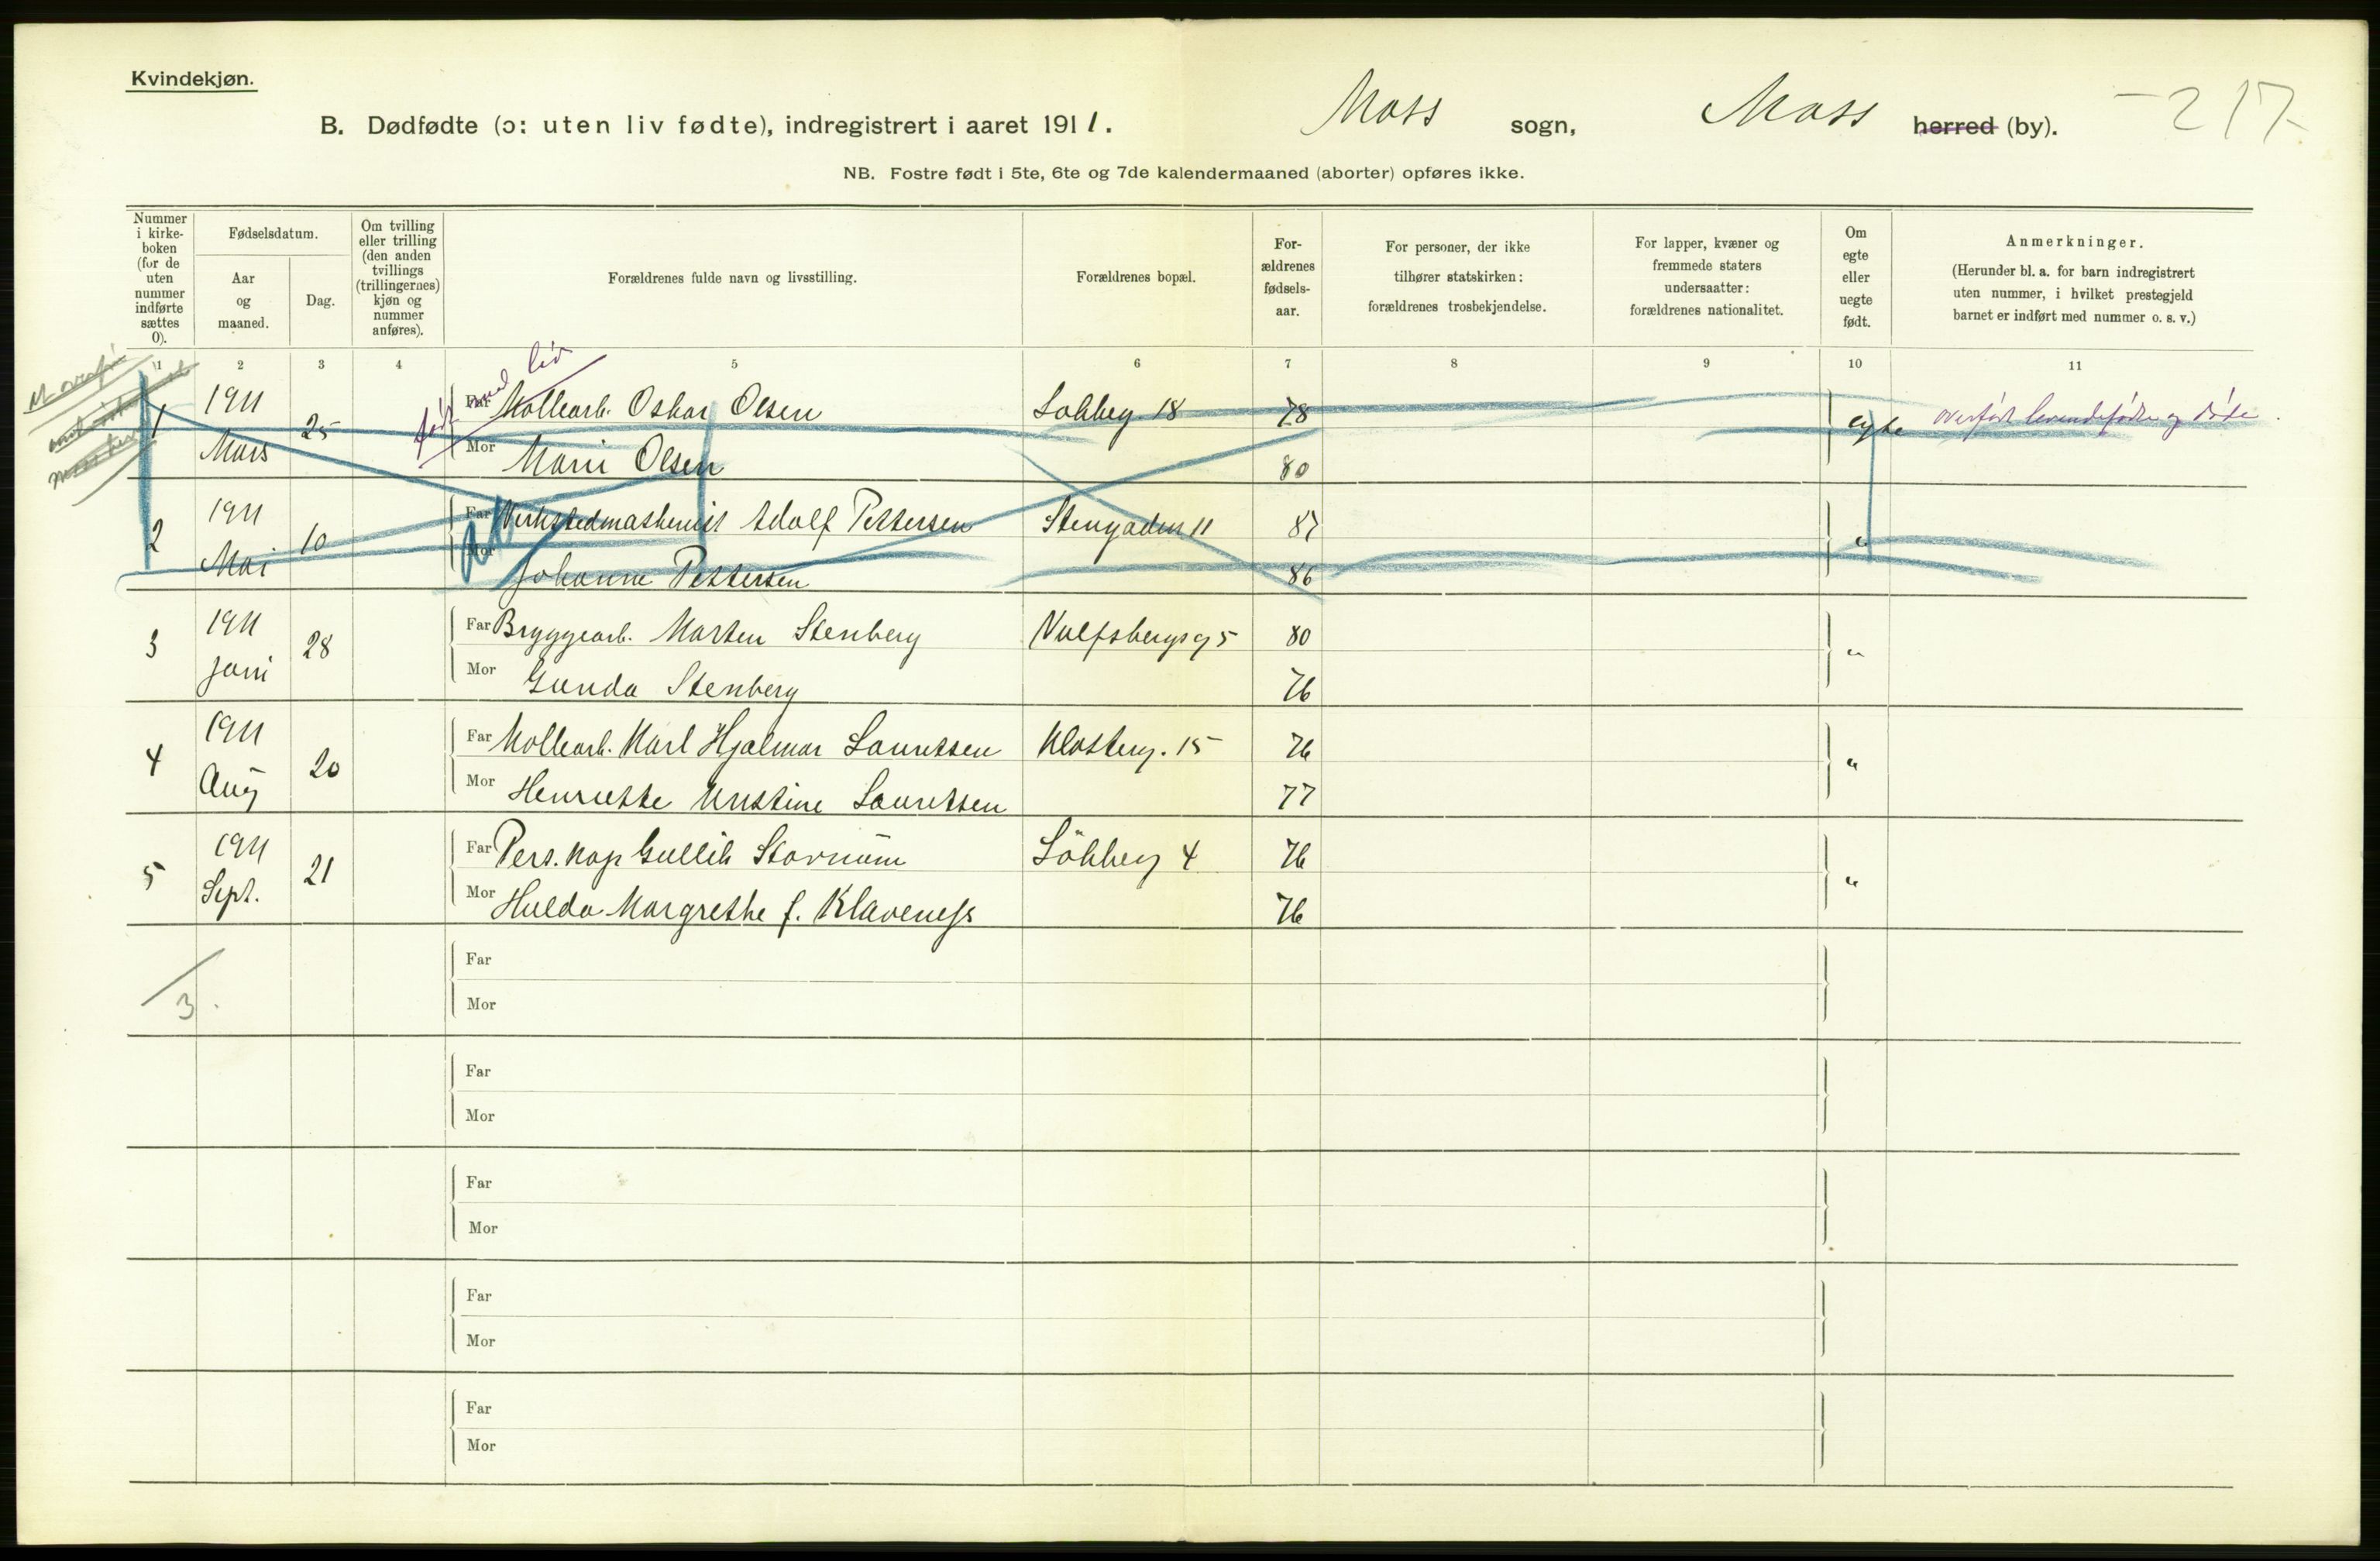 Kvindekjøn.
B. Dødfødte (ɔ: uten liv fødte), indregistrert i aaret 1911. Moss sogn, Moss herred (by). 217
NB. Fostre født i 5te, 6te og 7de kalendermaaned (aborter) opføres ikke.
Nummer i kirkeboken (for de uten nummer indførte sættes 0).
Fødselsdatum.
Aar og maaned.
Dag.
Om tvilling eller trilling (den anden tvillings (trillingernes) kjøn og nummer anføres).
Forældrenes fulde navn og livsstilling.
Forældrenes bopæl.
Forældrenes fødselsaar.
For personer, der ikke tilhører statskirken: forældrenes trosbekjendelse.
For lapper, kvæner og fremmede staters undersaatter: forældrenes nationalitet.
Om egte eller uegte født.
Anmerkninger.
(Herunder bl. a. for barn indregistrert uten nummer, i hvilket prestegjeld barnet er indført med nummer o. s. v.)
1 2 3 4 5 6 7 8 9 10 11
født med liv
1 1911 Mars 25 Far Møllearb. Oskar Olsen 78 egte overført levendefødte og døde
Mor Marie Olsen 80
2 1911 Mai 10 Far Adolf Pettersen Stengaden 11 87 "
Mor Johanne Pettersen 86
3 1911 Juni 28 Far Bryggearb. Marten Stenberg 80 "
Mor Gunda Stenberg 76
4 1911 Aug 20 Far Møllearb. Karl Hjalmar Lauretsen Klosterg. 15 76 "
Mor Henriette Kristine Lauretsen 77
5 1911 Sept. 21 Far Pers. kap Gullik Stavnum 4 76 "
Mor Hulda Margrethe f. Klaveness 76
3.
Far
Mor
Far
Mor
Far
Mor
Far
Mor
Far
Mor